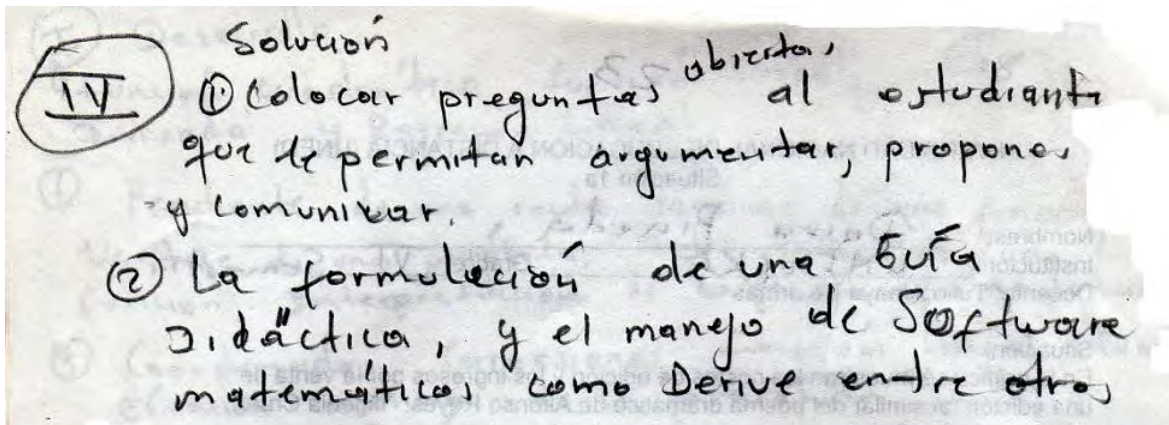 Solución
IV ① Colocar preguntas abiertas al estudiante
que le permitan argumentar, proponer
y comunicar.
② La formulación de una Guía
Didáctica, y el manejo de Software
matemáticos como Derive entre otros